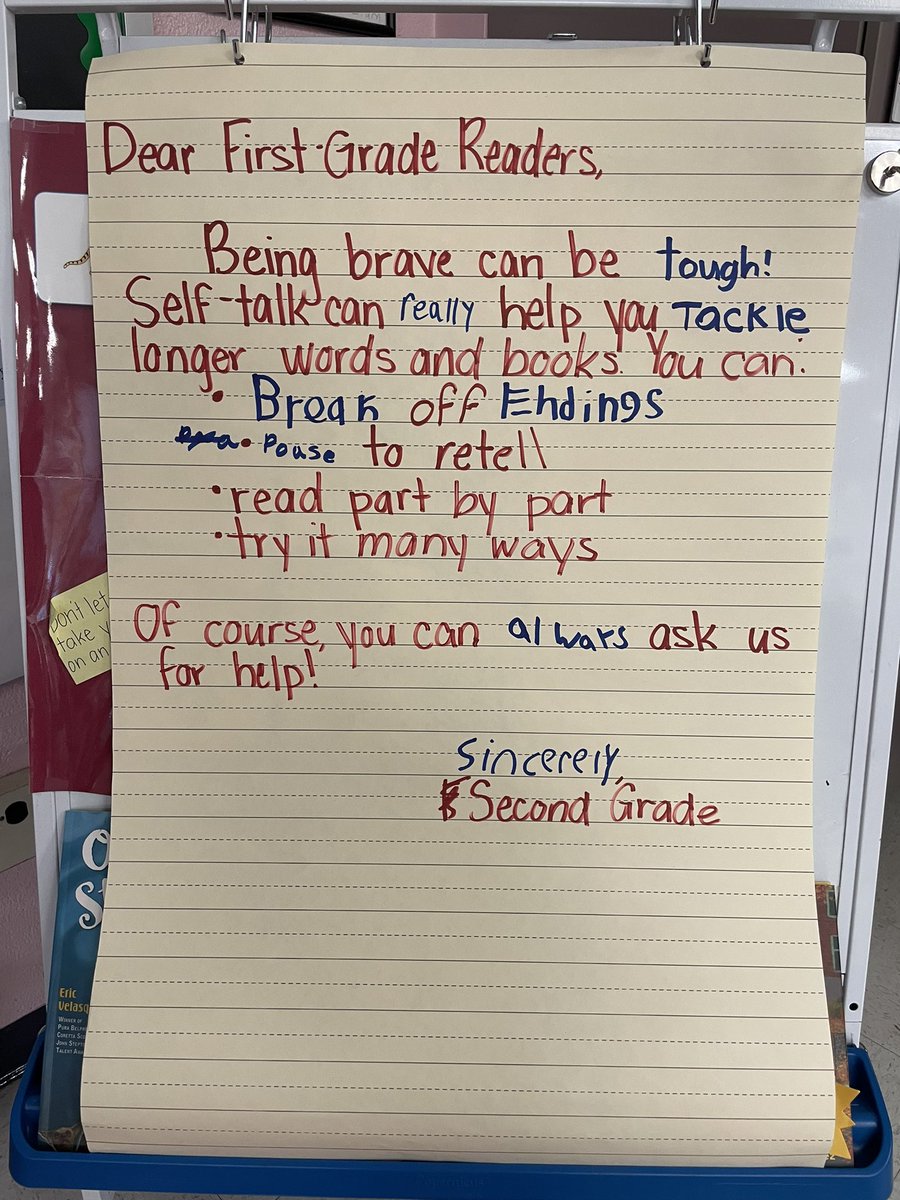 Dear First-Grade Readers,
Being brave can be tough!
Self-talk can really help you Tackle
longer words and books. You can.
• Break off Endings
• Pouse to retell
• read part by part
• try it many ways
Of course, you can alwars ask us
for help!
Sincerely,
Second Grade
Don't let
take
on an
Eric
Velasq
WINNER OF
PURA BELPR
CORETTA SC
JOHN STEPT
TALENT AWA